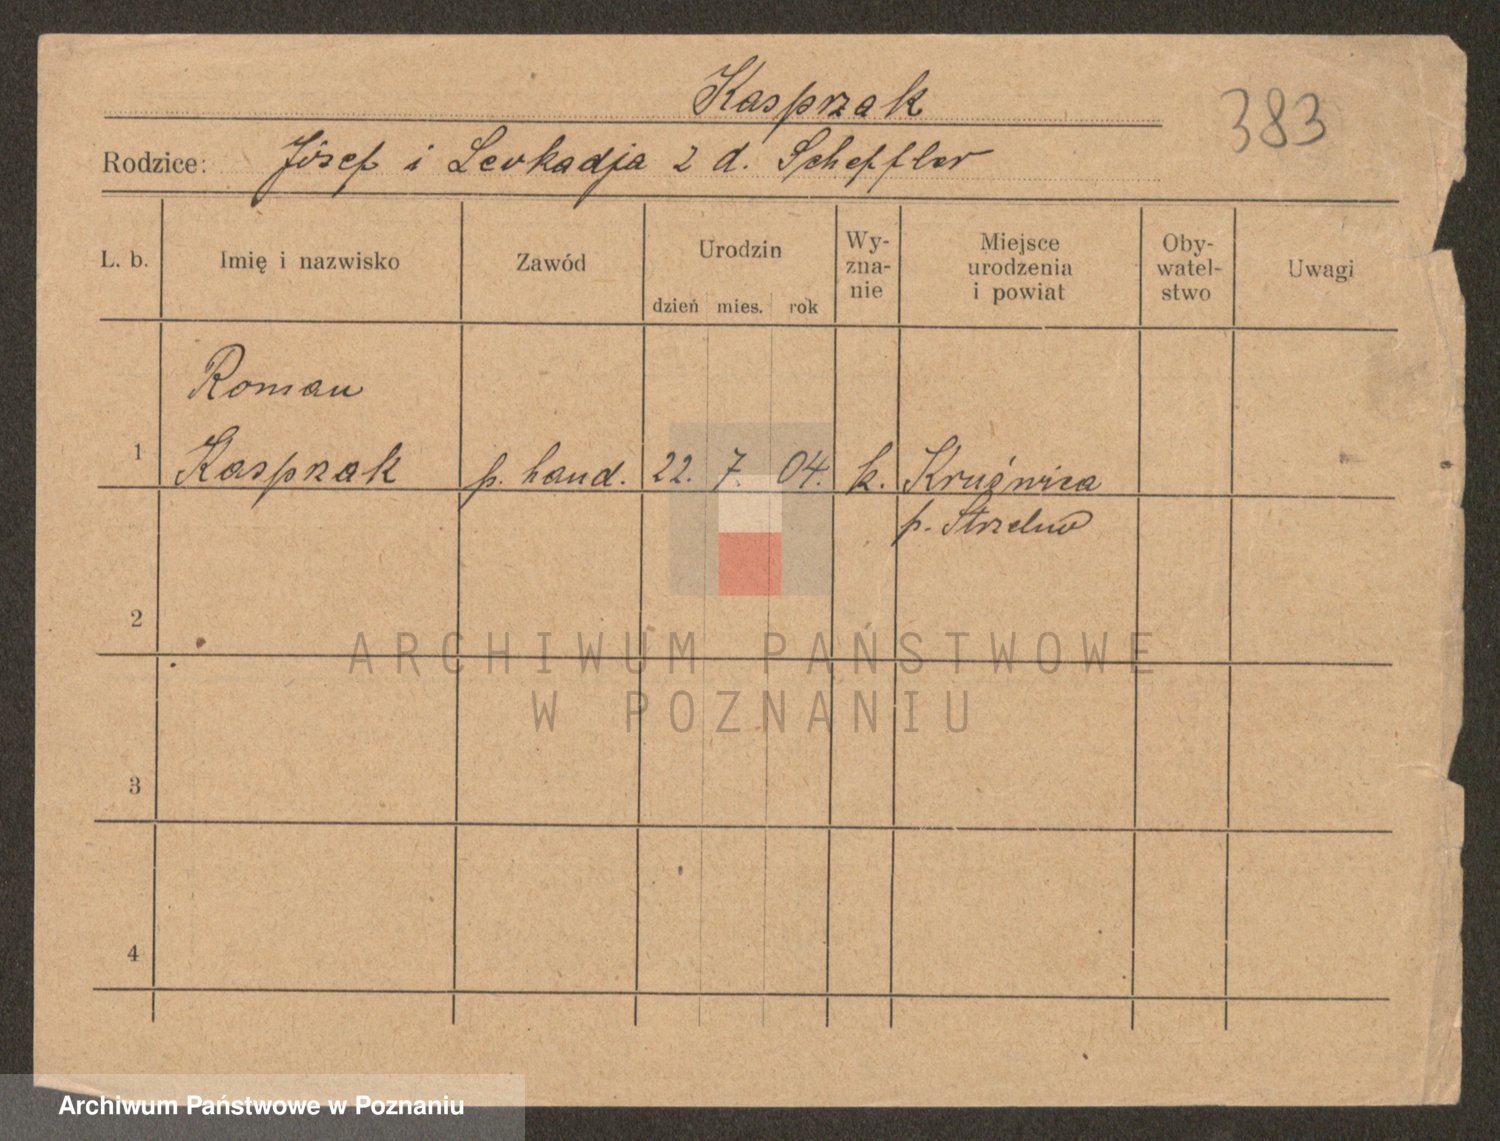 Kasprzak
383
Rodzice: Józef i Leokadja z d. Scheffler
L. b. Imię i nazwisko Zawód Urodzin Wy-zna-nie Miejsce urodzenia i powiat Oby-watel-stwo Uwagi
dzień mies. rok
Roman
1 Kasprzak p. hand. 22. 7. 04. k. Kruświca
p. Strzelno
2
ARCHIWUM PAŃSTWOWE
W POZNANIU
3
4
Archiwum Państwowe w Poznaniu